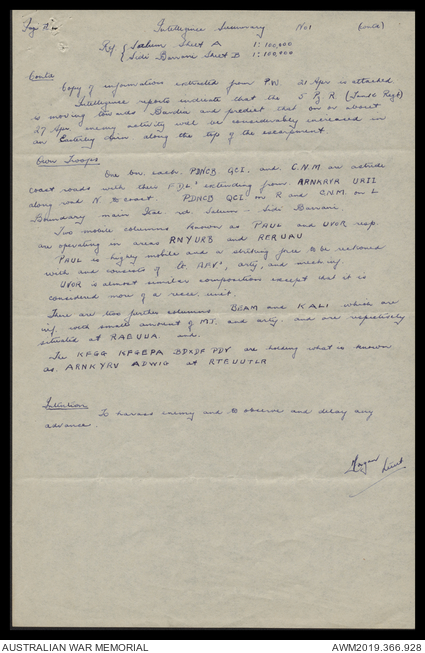 Intelligence Summary No1 (contd)
Ref { Salum Sheet A 1:100,000
{ Sidi Barrani Sheet B 1:100,000
Contd
Copy of information extracted from PW 21 Apr is attached
Intelligence reports indicate that the 5 P R (Tank Regt)
is moving towards Bardia and predict that on or about
27 Apr enemy activity will be considerably increased in
an Easterly along the top of the escarpment.
Own Troops
One bn each. PDNCB QCI. and C.N.M are astride
coast roads with their F.D.L's extending from ARNKRYR URII
along rd N to coast. PDNCB QCI on R and C.N.M. on L
Boundary main rd. Salum - Sidi Barrani.
Two mobile columns known as PAUL and UVOR resp
are operating in areas RNYURB and RERUAU
PAUL is highly mobile and a striking force to be reckoned
with and consists of arty, and
UVOR is almost similar composition except that it is
considered more of a
There are two further columns BEAM and KALI which are
inf. with small amount of MT. and arty. and are respectively
situated at RAEUUA. and.
The KFGG KFGEPA BDXDF PDV are holding what is known
as ARNKYRV ADWIG at RTEUUTLR
Intention
To harass enemy and to observe and delay any
advance.
Lieut
AUSTRALIAN WAR MEMORIAL
AWM2019.366.928